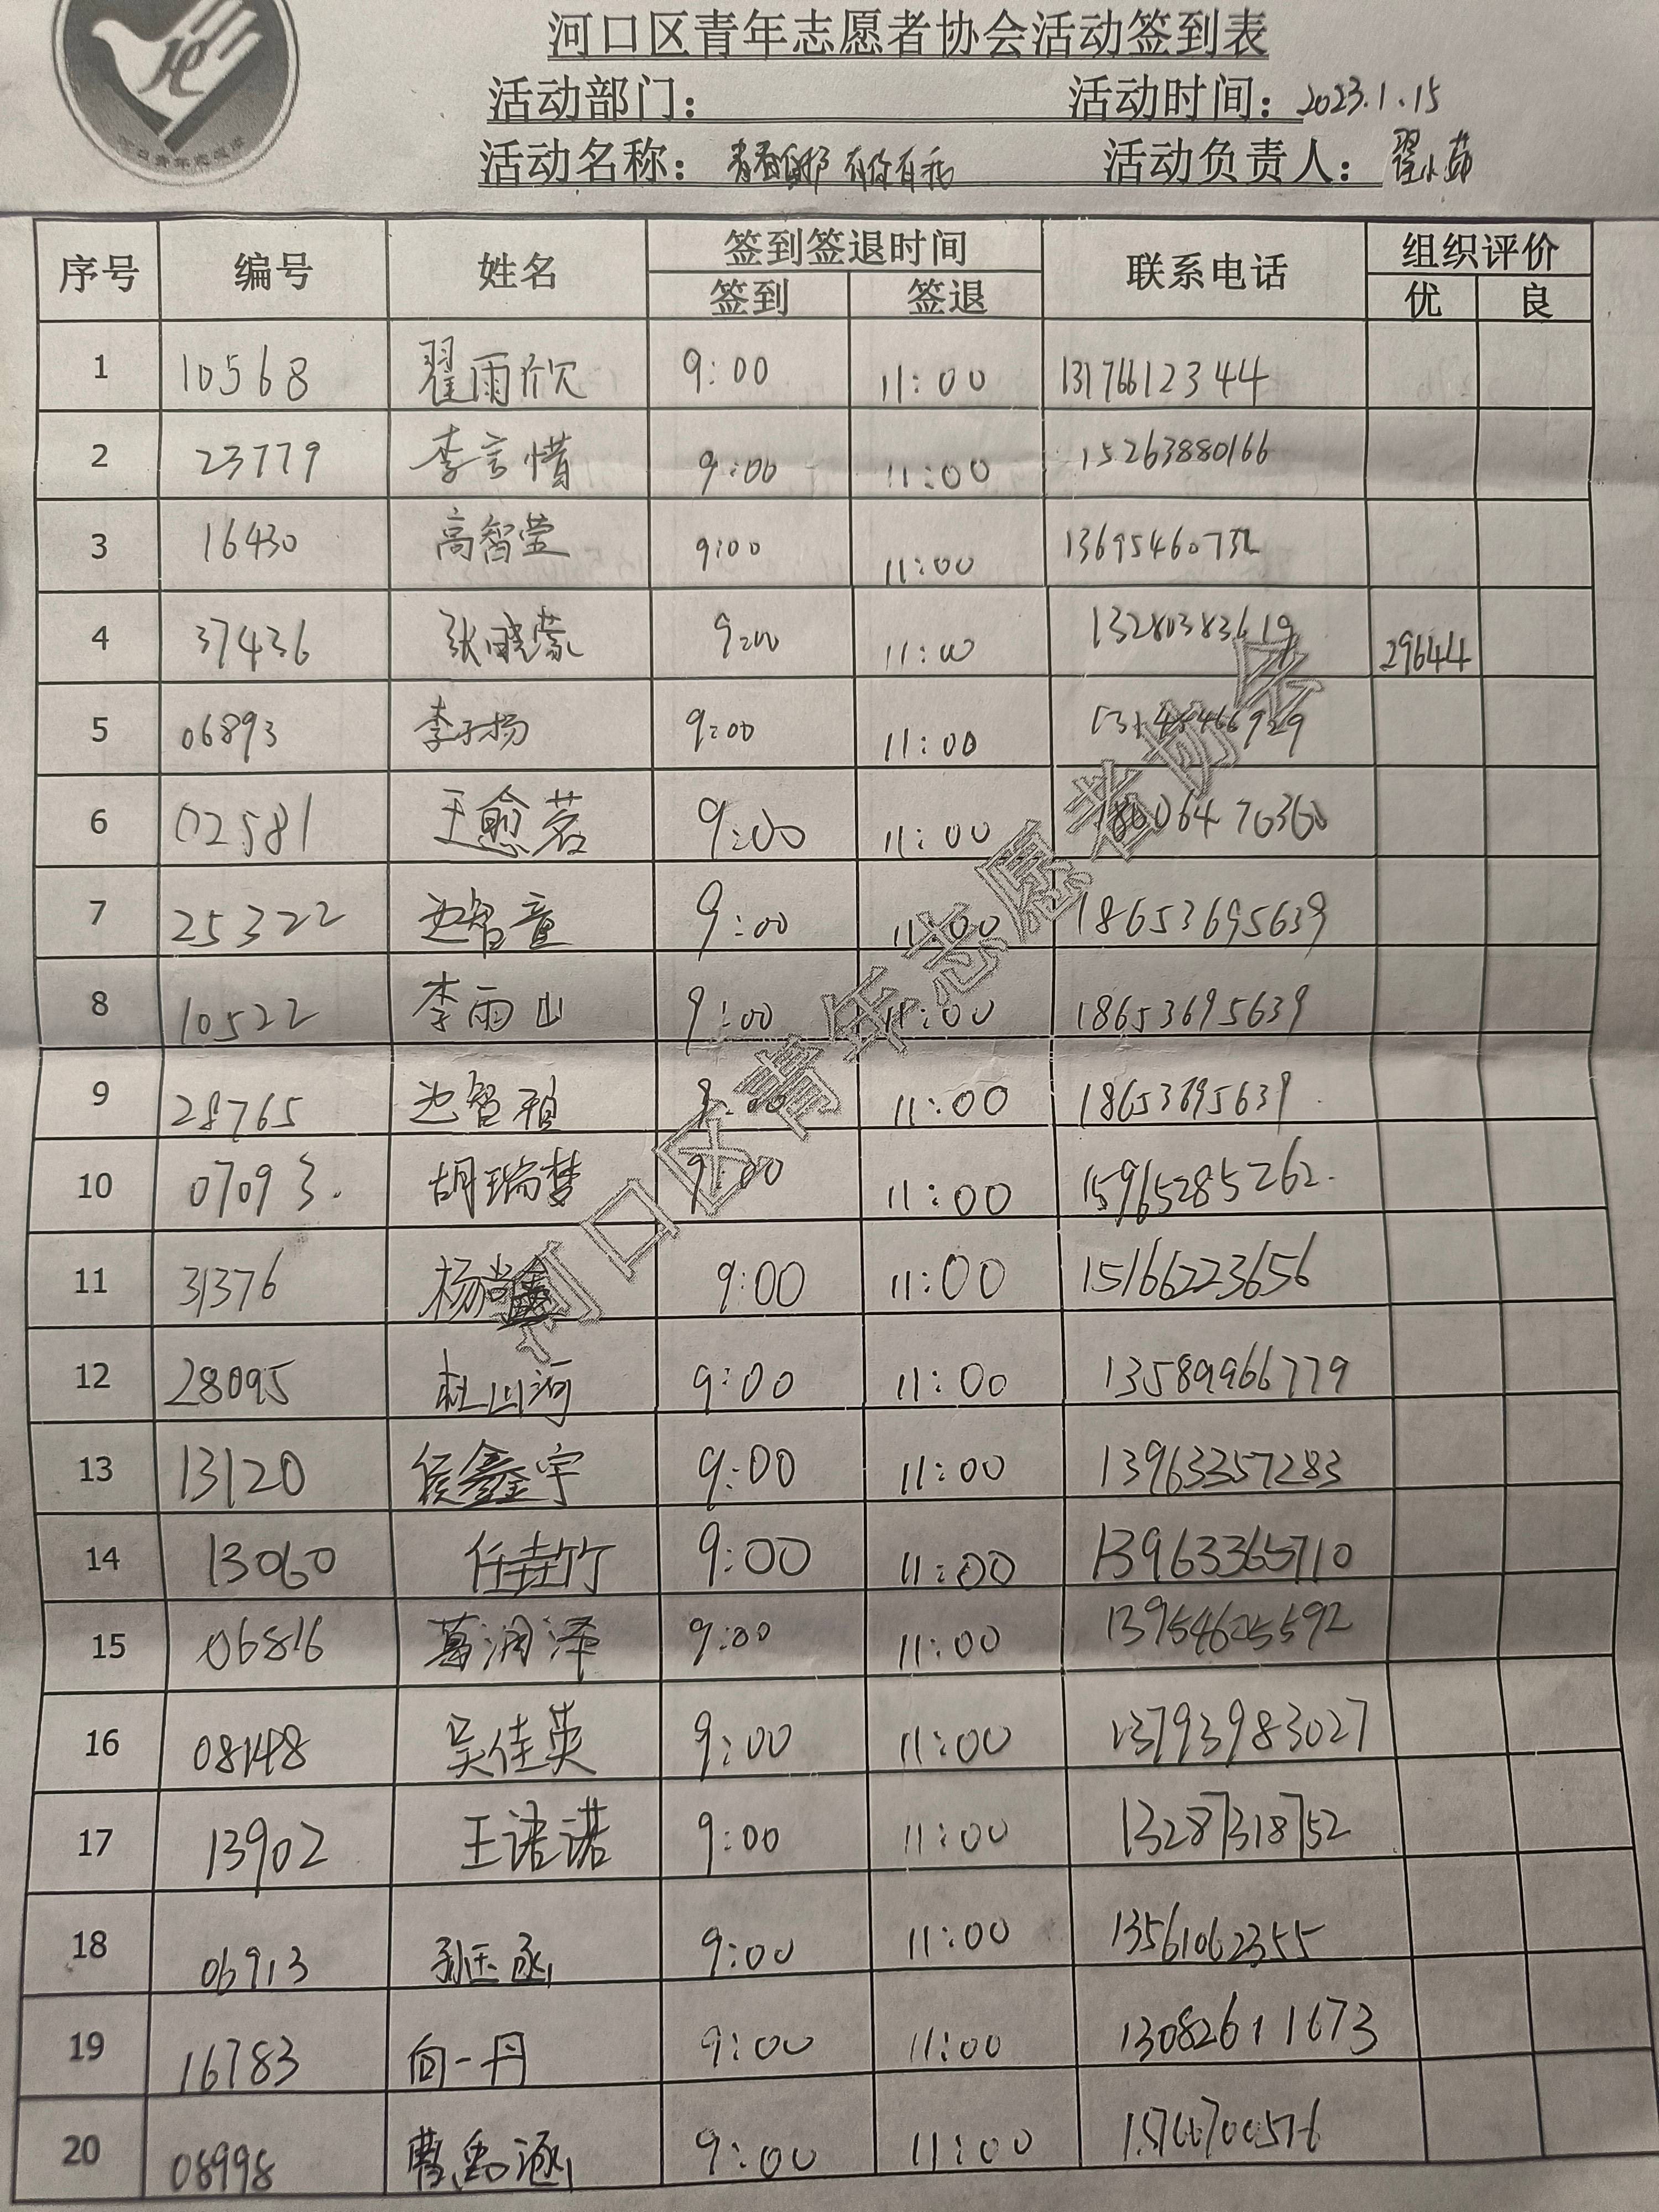 河口区青年志愿者协会活动签到表
活动部门： 活动时间：2023.1.15
活动名称：青春 有你有我 活动负责人：翟小茹
序号 编号 姓名 签到签退时间 联系电话 组织评价
签到 签退 优 良
1 10568 翟雨欣 9:00 11:00 13176612344
2 23779 李言惜 9:00 11:00 15263880166
3 16430 高智莹 9:00 11:00 13695460732
4 37436 张晓蒙 9:00 11:00 13280383619 29644
5 06893 李子扬 9:00 11:00
6 02581 王愈茗 9:00 11:00 18006470360
7 25322 边智童 9:00 11:00 18653695639
8 10522 李雨山 9:00 11:00 18653695639
9 28765 边智祖 9:00 11:00 18653695639
10 07093. 胡瑞梦 9:00 11:00 15965285262.
11 31376 杨尚鑫 9:00 11:00 15166223656
12 28095 杜山河 9:00 11:00 13589966779
13 13120 侯鑫宇 9:00 11:00 13963357283
14 13060 任垚竹 9:00 11:00 13963365710
15 06816 葛润泽 9:00 11:00 13954625592
16 08148 吴佳英 9:00 11:00 13793983027
17 13902 王诺诺 9:00 11:00 13287318752
18 06913 孙玉函 9:00 11:00 13561062355
19 16783 向一丹 9:00 11:00 13082611673
20 08998 曹禹涵 9:00 11:00 15766700576
河口区青年志愿者协会
河口青年志愿者